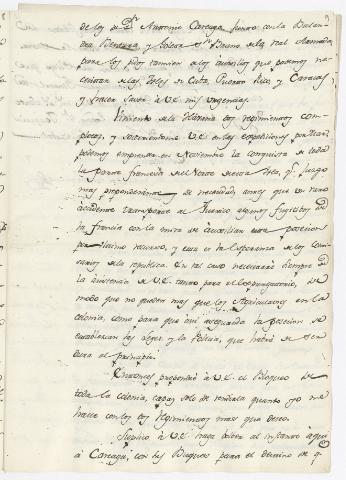 de los de Dn. Antonio Careaga, junto con la Balan-
dra Ventura, y Golera Sn. Bruno de la real Armada,
para los pido tamien a los auxilios que podamos ne-
cesitar de las Yslas de Cuba, Puerto Rico, y Caracas
y hacer saver à V.E. mis urgencias.
Viniendo de la Havana dos regimientos com-
pletos, y sosteniendome V.E. en las expediciones por Mar
podemos emprender en Noviembre la conquista de toda
la parte francesa del Norte de esta Ysla, qe. juzgo
mas proporcionar de necesidad, antes que un raro
accidente transporte al Guarico algunos fugitivos de
la francia con la mira de auxiliar esta posesion
por ultimo recurso, y esta es la esperanza de los Comi-
sarios de la republica. En tal caso necesitarè siempre de
la asistencia de V.E. tanto para el expurgatorio, de
modo que no queden mas que los Agricultores en la
colonia, como para que asi asegurada la posesion se
establezcan las leyes y la Policia, que habrà de ser
dura al principio.
Entonces propondrè à V.E. el Bloqueo de
toda la colonia, capaz solo de rendirla quanto yo me
halle con los dos Regimientos mas que deseo.
Suplico à V.E. haga bolver al instante à aqui
à Careaga, con los Buques para el destino de q.